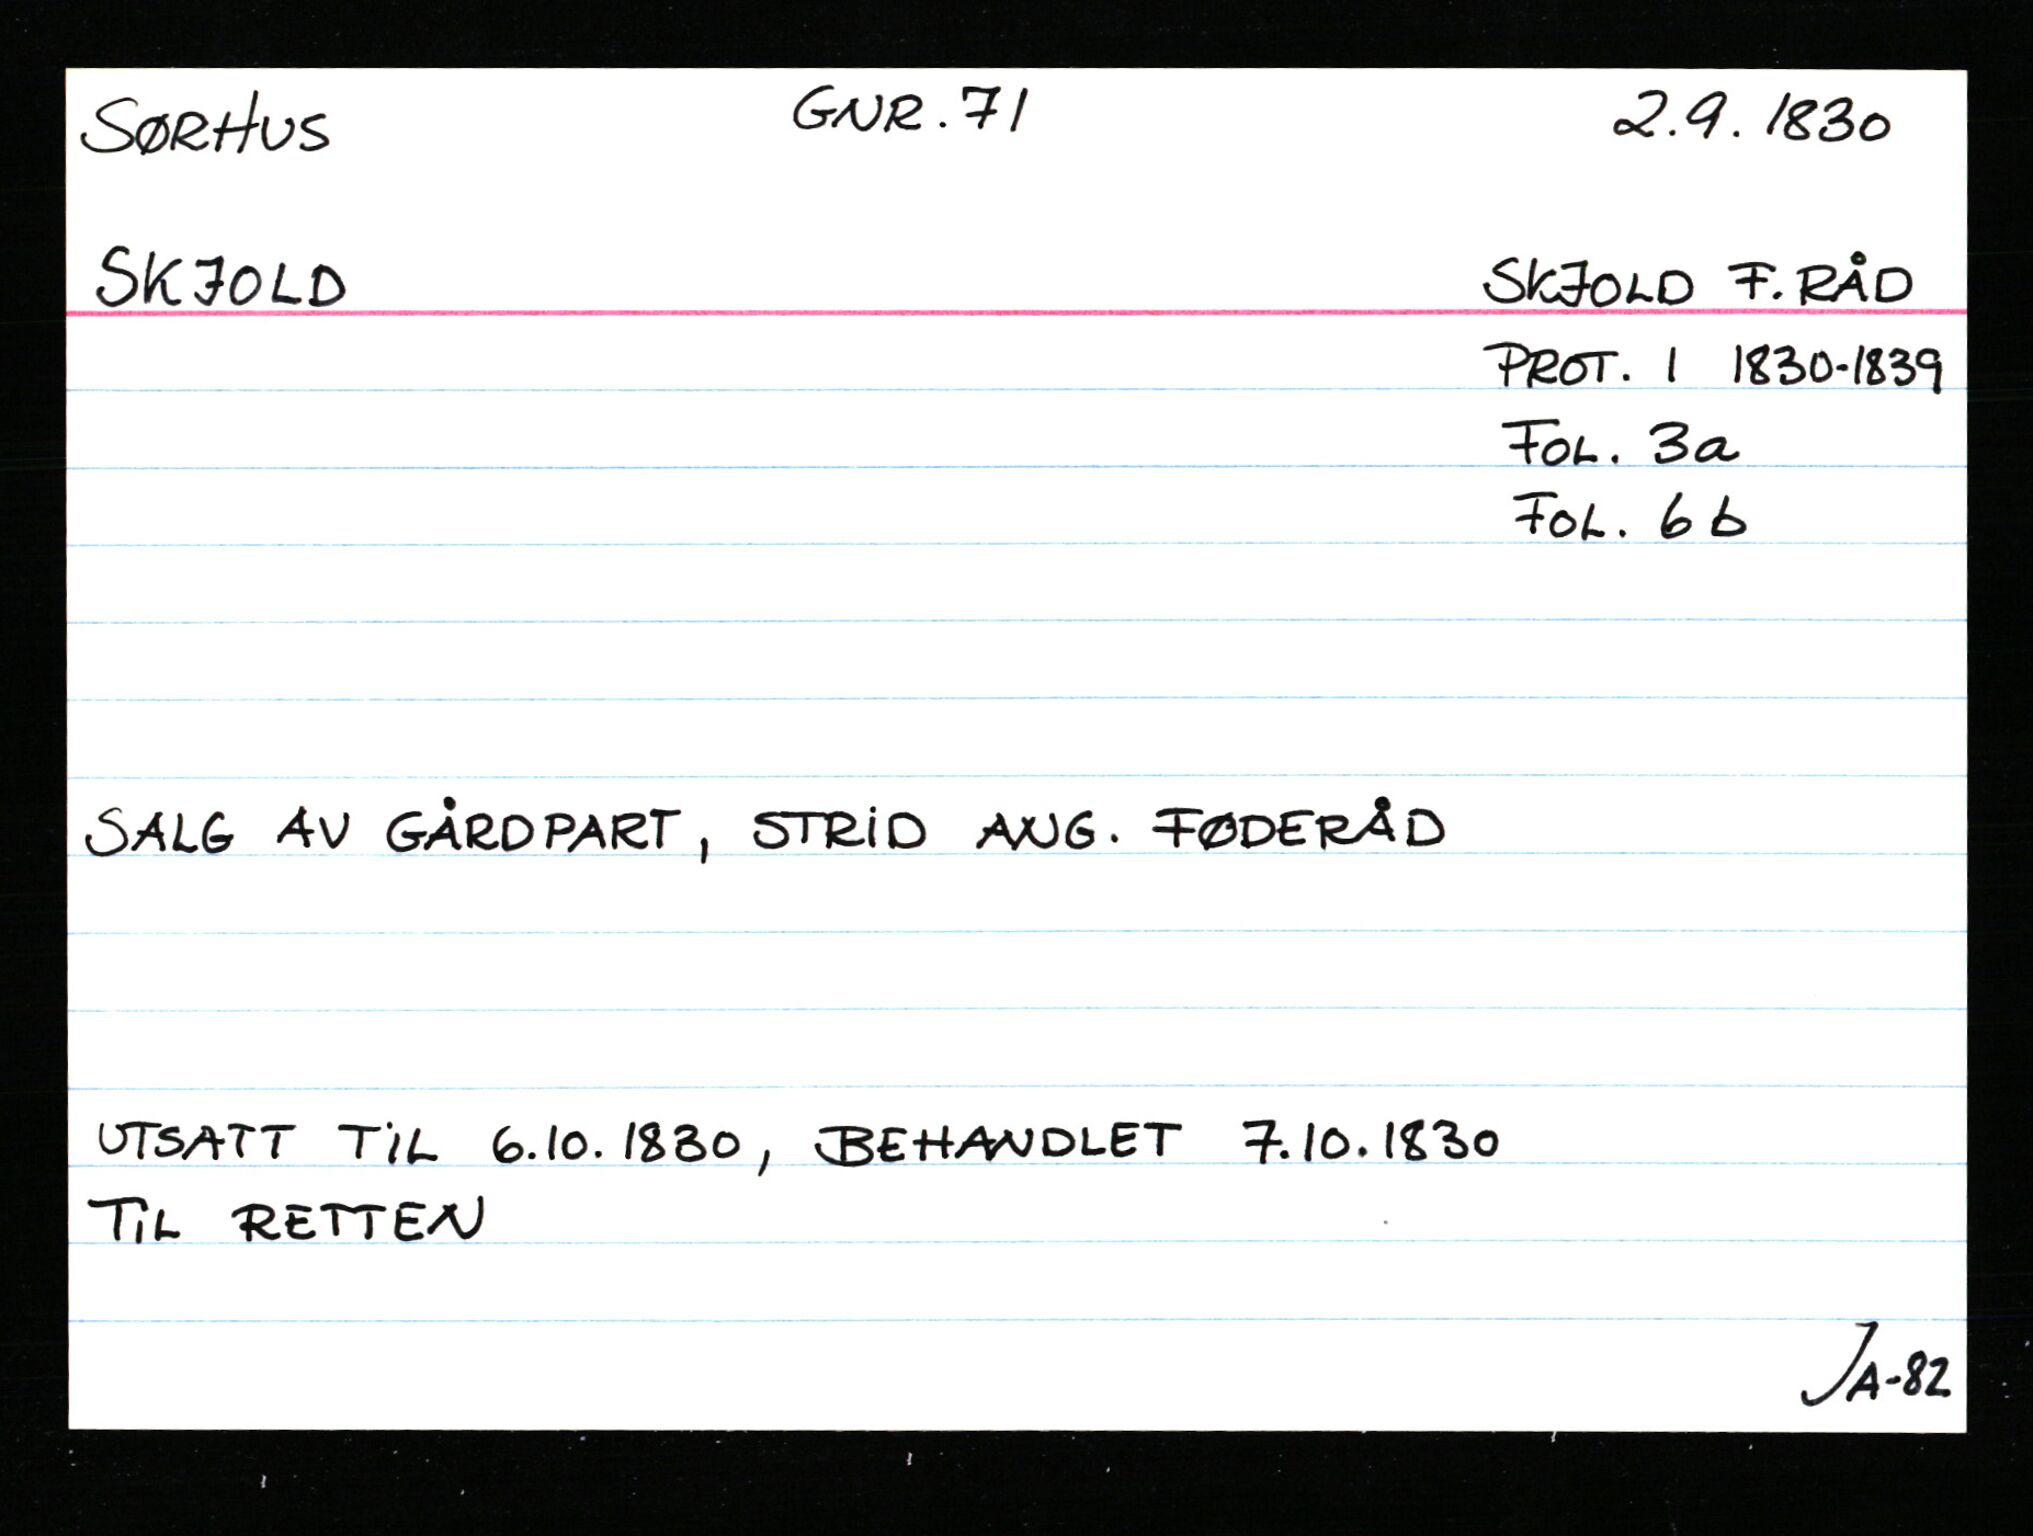 SØRHUS GNR. 71 2.9.1830
SKJOLD SKJOLD F.RÅD
PROT. 1 1830-1839
FOL. 3a
FOL. 6b
SALG AV GÅRDPART, STRID ANG. FØDERÅD
UTSATT TIL 6.10.1830, BEHANDLET 7.10.1830
TIL RETTEN
JA-82